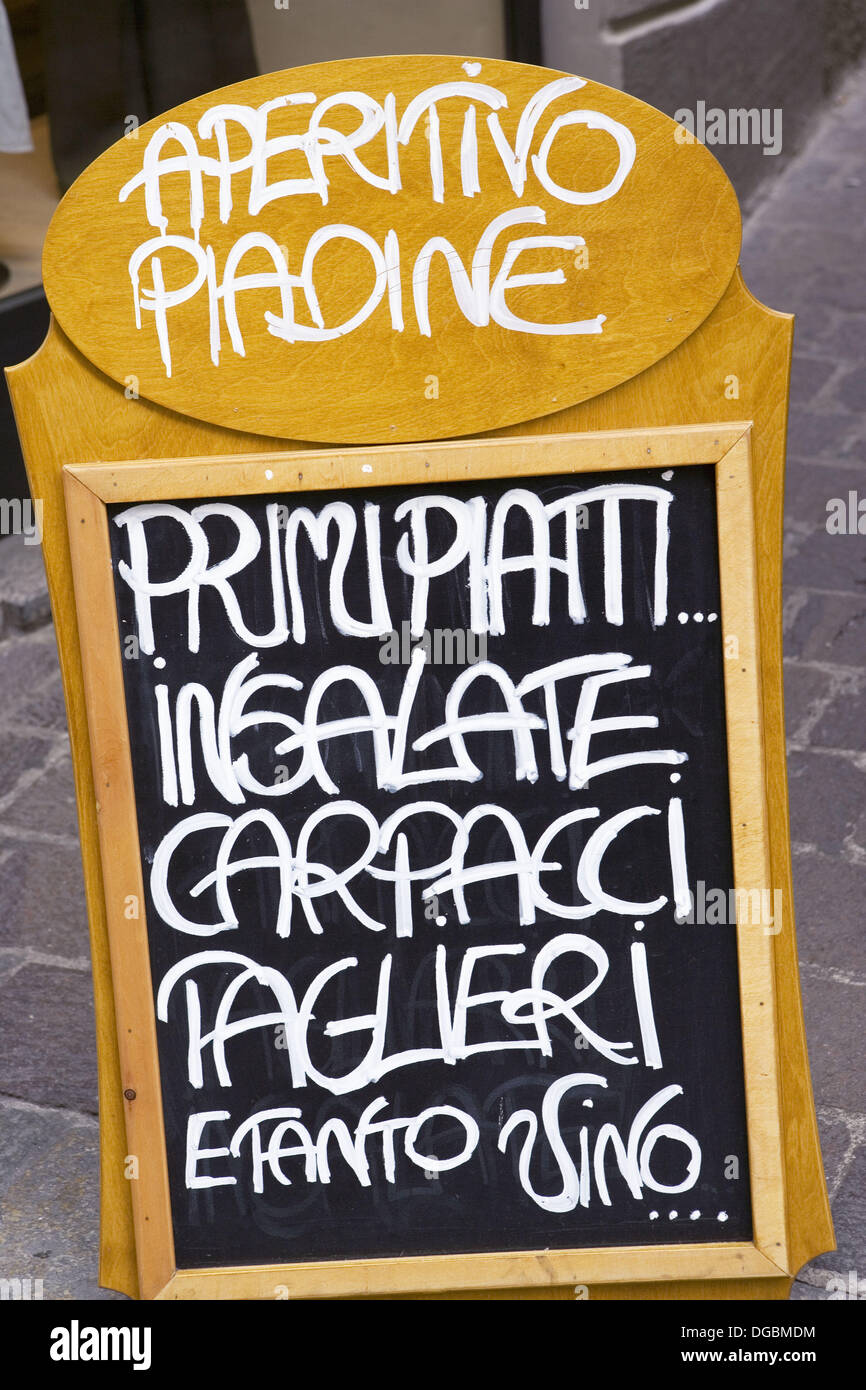 APERITIVO
PIADINE
PRIMI PIATTI...
iNSALATE
CARPACCi
TAGLiERi
E TANTO ViNO.....
alamy
Image ID: DGBMDM
www.alamy.com